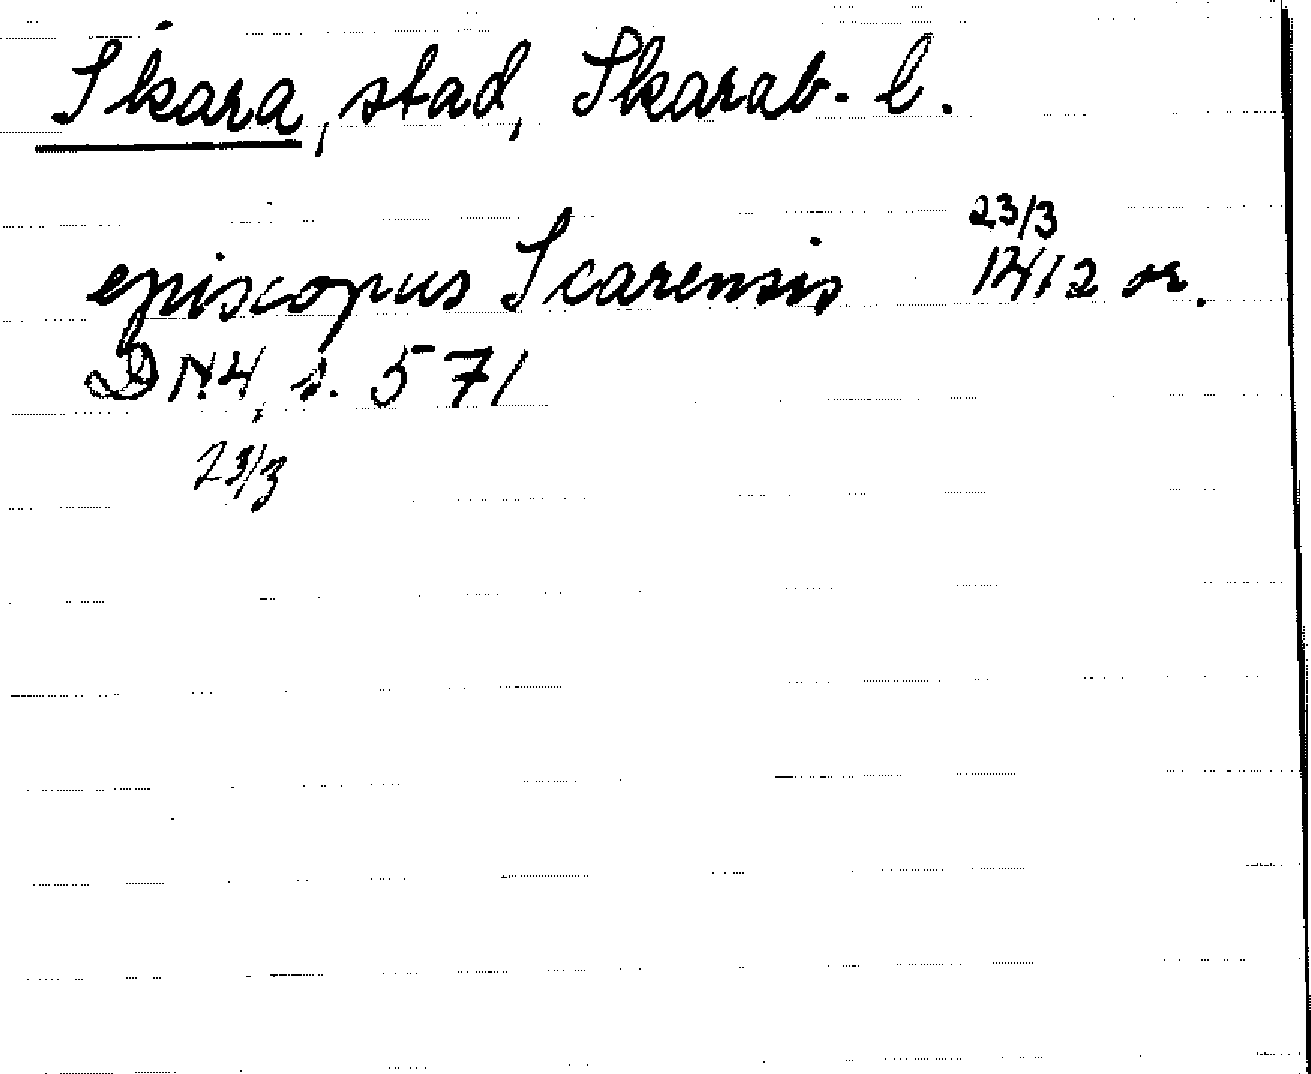 Skara, stad, Skarab. l.
episcopus Scarensis 23/3 1412 or.
DN4, s. 571
23/3